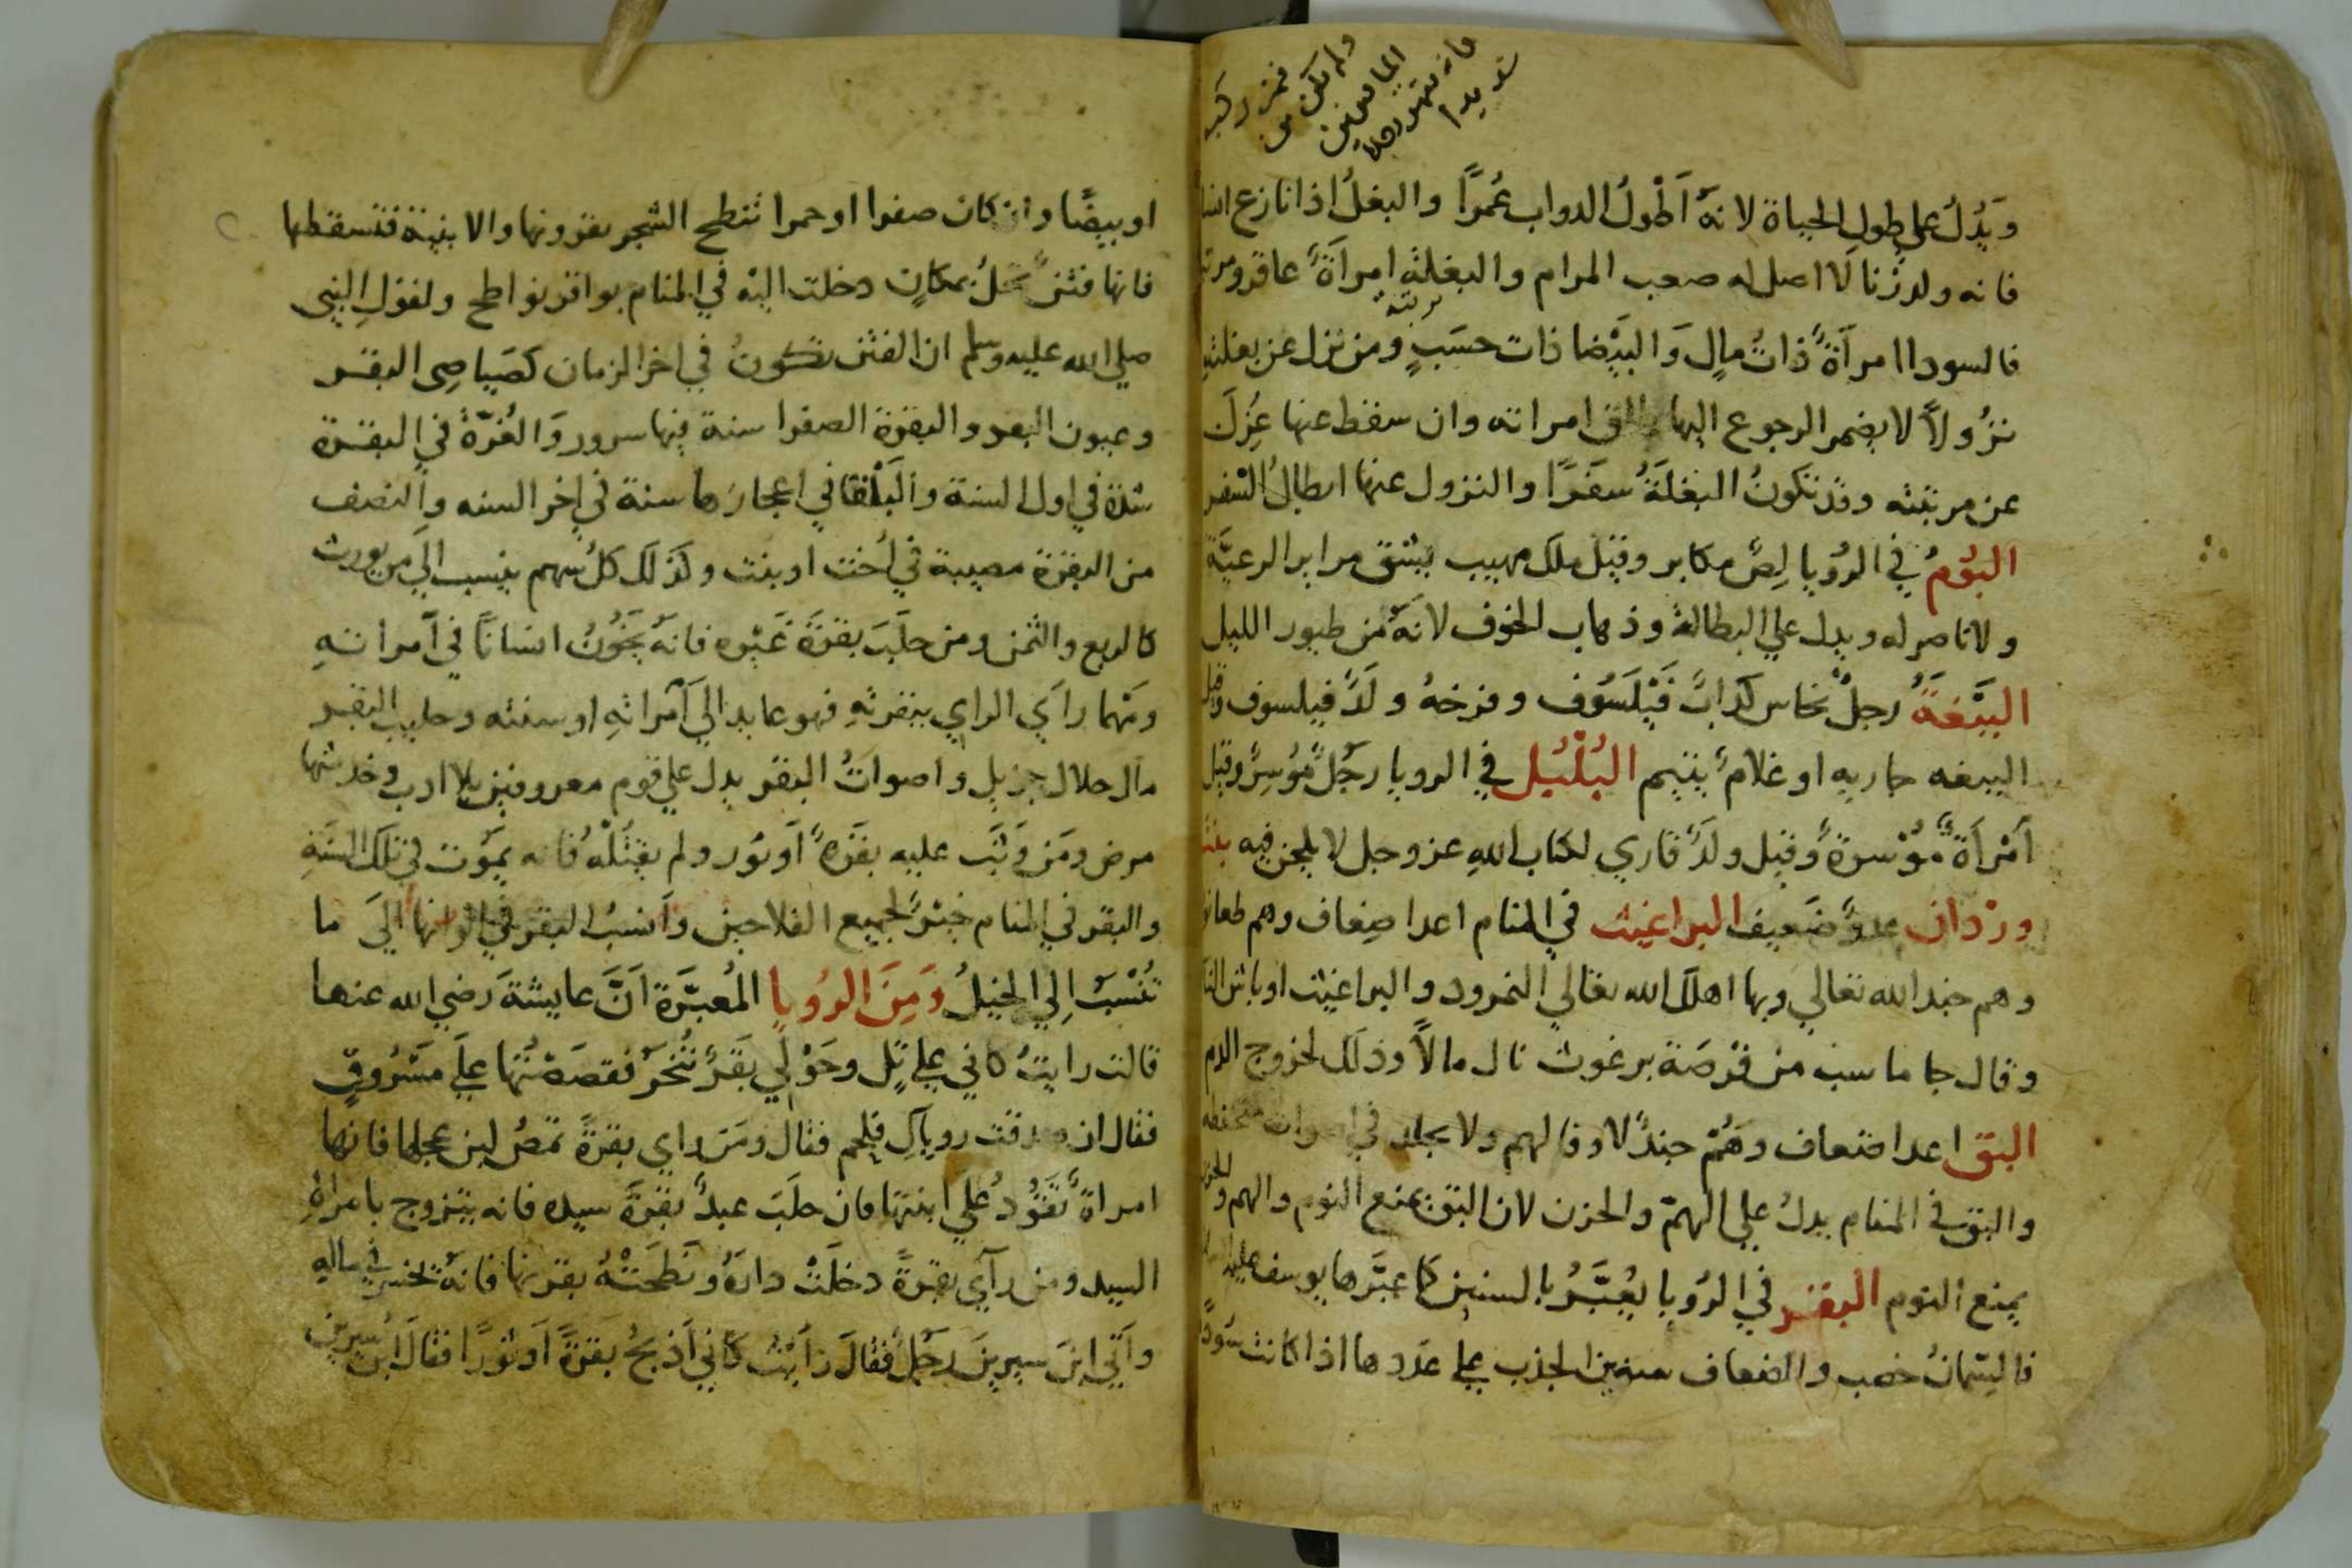 فمن ركب
ولم يكن من
فانه يقهر رجلا
شديدا
ويَدُلُ على طول الحياة لانهُ اَطْولُ الدواب عُمرًا والبغلُ اذا نازع انسا
فانه ولد زنا لا اصل له صعب المرام والبغلة امرأة عاقر
فالسودا امرأة ذات مالٍ وَالبَيْضا ذات حسَبٍ ومن نزل عن بغلته
نزُولاً لا يضمر الرجوع اليها طلق امراته وان سقط عنها عُزِلَ
عن مرتبته وقد تكونُ البغلَةُ سَفَرًا والنزول عنها ابطالُ السّفر
البُومُ في الرُويا لِصٌ مكابر وقيل ملك مهيب يشق مراير الرعيَّة
ولا ناصر له ويدل علي البطالة وذهاب الخوف لانهُ من طيور الليل
البَبَّغَةُ رجلٌ نخاس كذابٌ فَيْلَسُوف وفرخهُ ولَدٌ فيلسوف وقيل
الببغه جاريه او غلامٌ يتيم البُلْبُل في الرويا رجُلٌ مُوُسِرٌ وقيل
اَمْرأَةٌ مُوْسرةٌ وقيل ولَدٌ قاري لكتاب اللهِ عز وجل لا يلحن فيه بنت
ورْدان عدوٌ ضَعيف البراغيث في المنام اعدا ضِعاف وهم طعان
وهم جند الله تعالي وبها اهلك الله تعالي النمرود والبراغيث اوباش النا
وقال جاماسب من قرصَهَ برغوث نال مالاً وذلك لخروج الدم
البق اعدا ضعاف وهُمْ جندٌ لا وفا لهم ولا يجلد في
والبق في المنام يدلُ علي الهمّ والحزن لان البق يمنع النوم والهم والحزن
يمنع النوم البقر في الرُويا يُعَبَّرُ بالسنين كما عبَّرها يوسف عليه
فالسّمانُ خصب والضعاف سنين الجذب علي عَدَدها اذا كانت سُودًا
او بيضًا وان كان صفرا او حمرا تنطح الشجر بقرونها والابنية فتسقطها
فانها فتنٌ تحلُ بمكانٍ دخلت اليْه في المنام بواقر نواطح ولقولِ النبي
صلي الله عليه وسلم ان الفتن تكونُ في اخر الزمان كصَياصِى البقر
وعيون البقر والبقرة الصفرا سنة فيها سرور وَالغُرَّةُ في البقرة
شدة في اول السنة والَبَلْقا في اعجازها سنة في اخر السنه والنصف
من البقرة مصيبة في اُخت او بنت وكذلك كلُ سهم ينسب الي من يورث
كالربع والثمن ومن حلَبَ بقرَةَ غَيْره فانهُ يَخُونُ انسانًا في اَمراتهِ
ومَهما راَي الراي ببقرتهِ فهو عايد الي اَمراتهِ او سنته وحليب البقر
مال حلال جزيل واصواتُ البقر يدل علي قوم معروفين بلا ادب وخدشها
مرض ومَن وَثَبَ عليه بقَرهٌ اَو ثور ولم يقتُلْهُ فانه يَموُت في تلك السَنَهِ
والبقر في المنام خيرٌ لجميع الفلاحين واَنسُب البقر في الوانها الَي ما
تُنْسَبُ اِلي الخيلُ وَمِنَ الرُويا المُعبّرَة اَنَّ عايشةَ رضي الله عنها
قالت رايتُ كاني علي تلٍ وحَوْلي بقَرٌ تُنْحَرُ فقصَصْتُها علَي مَسْرُوقٍ
فقال ان صدقت روياكِ فقال ومَن راي بقرةً تمصُ لبن عجلها فانها
امراةٌ تَقُودُ علَي ابنتها فان حلَبَ عبدٌ بقرَةَ سيده فانه يتزوج بامراةِ
السيد ومن راَي بقرةً دخلَتْ دارَهُ ونَطَحَتْهُ بقرنها فانهُ يخسر في مالهِ
واَتي ابنَ سيرينَ رجُلٌ فقالَ رَايْتُ كاَني اَذبَحُ بَقرَةً اَو ثورًا فقالَ ابنُ سيرين